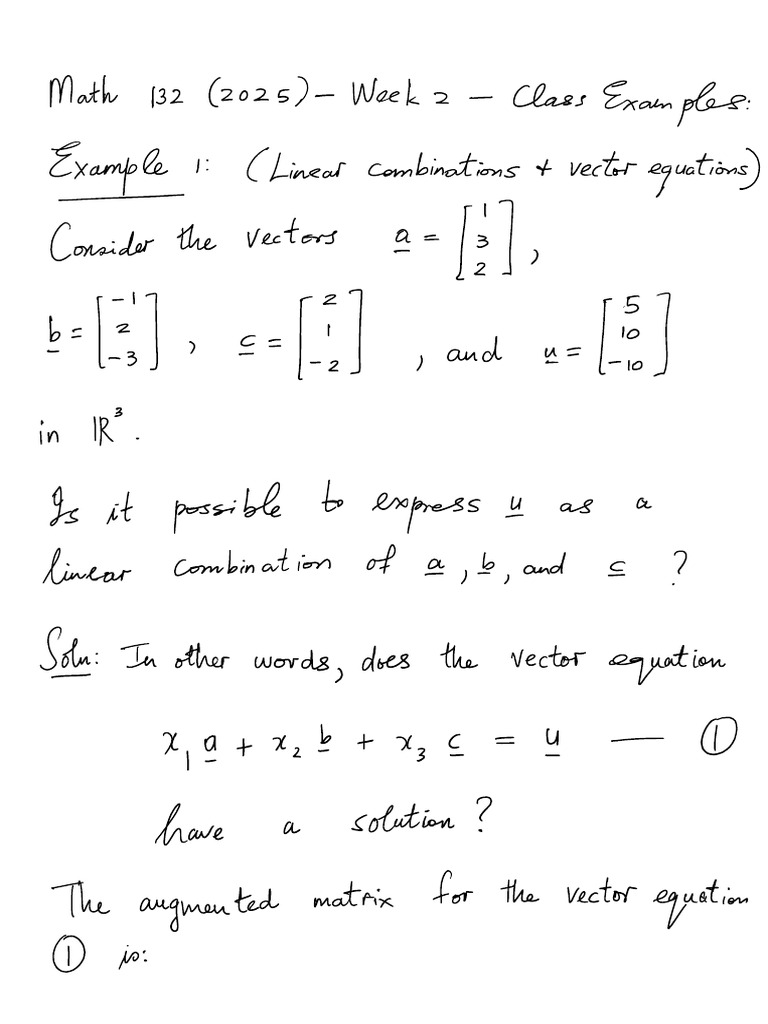 Math 132 (2025) – Week 2 – Class Examples:
Example 1: (Linear combinations + vector equations)
Consider the vectors a = [1 3 2],
b = [-1 2 -3], c = [2 1 -2], and u = [5 10 -10]
in ℝ³.
Is it possible to express u as a
linear combination of a, b, and c ?
Soln: In other words, does the vector equation
x₁ a + x₂ b + x₃ c = u — ①
have a solution?
The augmented matrix for the vector equation
① is: